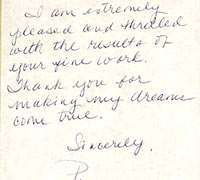 I am extremely
pleased and thrilled
with the results of
your fine work.
Thank you for
making my dreams
come true.
Sincerely,
P.